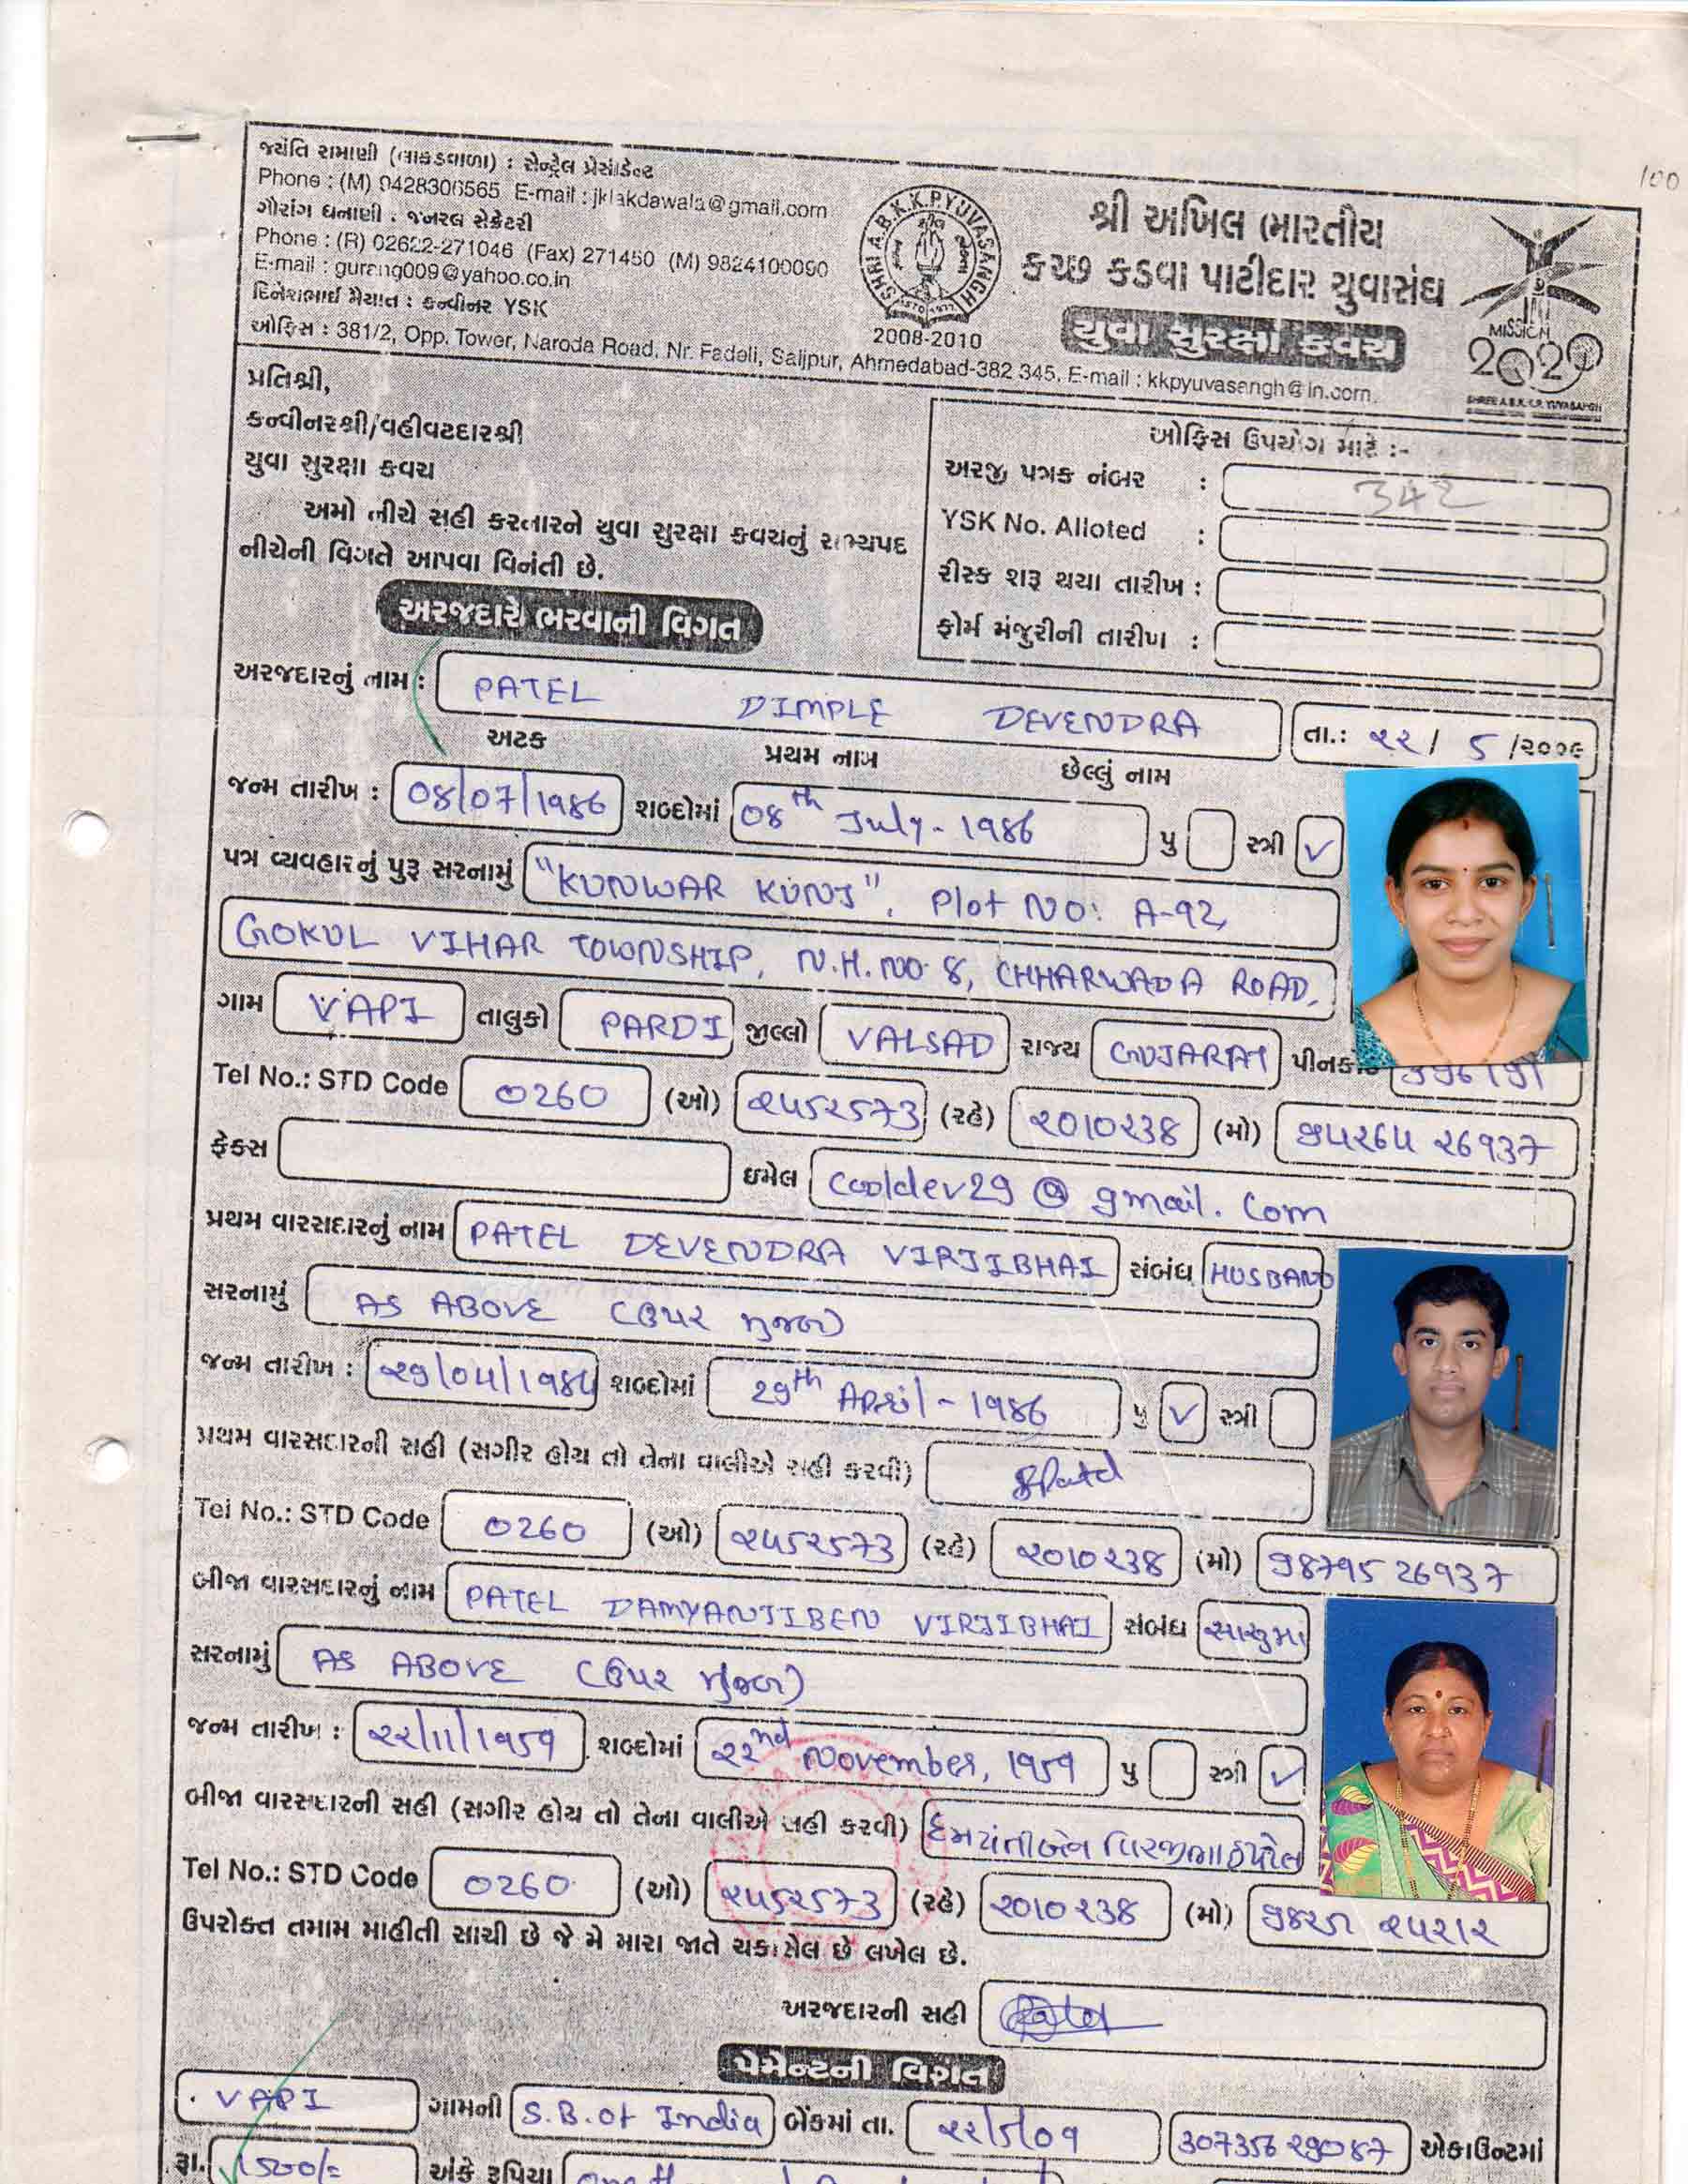 100
જયંતિ રામાણી (લાકડાવાળા) : સેન્ટ્રેલ પ્રેસીડેન્ટ
Phone : (M) 9428306565 E-mail : jklakdawala@gmail.com
ગૌરાંગ ધનાણી : જનરલ સેક્રેટરી
Phone : (R) 02622-271046 (Fax) 271450 (M) 9824100090
E-mail : gurang009@yahoo.co.in
દિનેશભાઈ મૈયાત : કન્વીનર YSK
ઓફિસ : 381/2, Opp. Tower, Naroda Road, Nr. Fadeli, Saijpur, Ahmedabad-382 345. E-mail : kkpyuvasangh@in.com.
SHRI A.B.K.K.P.YUVASANGH
2008-2010
શ્રી અખિલ ભારતીય
કચ્છ કડવા પાટીદાર યુવાસંઘ
યુવા સુરક્ષા કવચ
MISSION
2020
SHREE A.B.K.K.P. YUVASANGH
પ્રતિશ્રી,
કન્વીનરશ્રી/વહીવટદારશ્રી
યુવા સુરક્ષા કવચ
અમો નીચે સહી કરનારને યુવા સુરક્ષા કવચનું સભ્યપદ
નીચેની વિગતે આપવા વિનંતી છે.
ઓફિસ ઉપયોગ માટે :-
અરજી પત્રક નંબર : 342
YSK No. Alloted :
રીસ્ક શરૂ થયા તારીખ :
ફોર્મ મંજુરીની તારીખ :
અરજદારે ભરવાની વિગત
અરજદારનું નામ : PATEL DIMPLE DEVENDRA તા.: ૨૨/ 5 /૨૦૦૯
અટક પ્રથમ નામ છેલ્લું નામ
જન્મ તારીખ : 08/07/1986 શબ્દોમાં 08th July - 1986 પુ સ્ત્રી ✓
પત્ર વ્યવહારનું પુરૂ સરનામું "KUNWAR KUNJ", Plot NO: A-92,
GOKUL VIHAR TOWNSHIP, N.H. NO 8, CHHARWADA ROAD,
ગામ VAPI તાલુકો PARDI જીલ્લો VALSAD રાજ્ય GUJARAT પીનકોડ
Tel No.: STD Code 0260 (ઓ) ૨૫૬૨573 (રહે) ૨૦10૨38 (મો)
ફેક્સ ઇમેલ cooldev29@gmail.com
પ્રથમ વારસદારનું નામ PATEL DEVENDRA VIRJIBHAI સંબંધ HUSBAND
સરનામું AS ABOVE (ઉપર મુજબ)
જન્મ તારીખ : શબ્દોમાં 29th April - 1986 પુ ✓ સ્ત્રી
પ્રથમ વારસદારની સહી (સગીર હોય તો તેના વાલીએ સહી કરવી)
Tel No.: STD Code 0260 (ઓ) ૨૫૬૨573 (રહે) ૨૦10૨38 (મો) 98795 26937
બીજા વારસદારનું નામ PATEL DAMYANTIBEN VIRJIBHAI સંબંધ સાસુમા
સરનામું AS ABOVE (ઉપર મુજબ)
જન્મ તારીખ : ૨૨/11/1959 શબ્દોમાં ૨૨nd November, 1959 પુ સ્ત્રી ✓
બીજા વારસદારની સહી (સગીર હોય તો તેના વાલીએ સહી કરવી) દમયંતીબેન વિરજીભાઈ પટેલ
Tel No.: STD Code 0260 (ઓ) ૨૫૬૨573 (રહે) ૨૦10૨38 (મો)
ઉપરોક્ત તમામ માહીતી સાચી છે જે મે મારા જાતે ચકાસેલ છે લખેલ છે.
અરજદારની સહી
પેમેન્ટની વિગત
VAPI ગામની S.B. of India બેંકમાં તા. ૨૨/5/09 એકાઉન્ટમાં
રૂા. 1500/= અંકે રૂપિયા